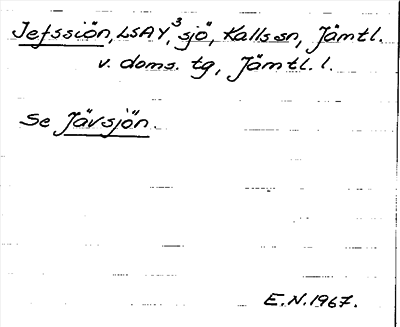 Jefssiön, LSAY,³ sjö, Kalls sn, Jämtl.
v. doms. tg, Jämtl. l.
Se Jävsjön.
E.N. 1967.